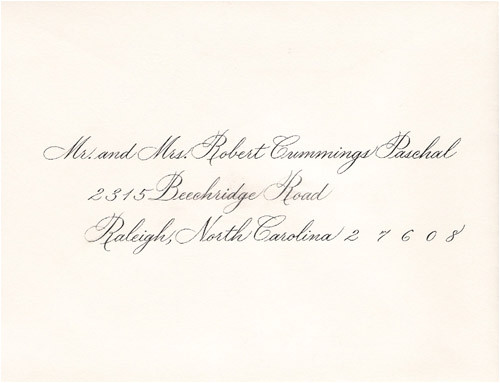 Mr. and Mrs. Robert Cummings Paschal
2315 Beechridge Road
Raleigh, North Carolina 2 7 6 0 8